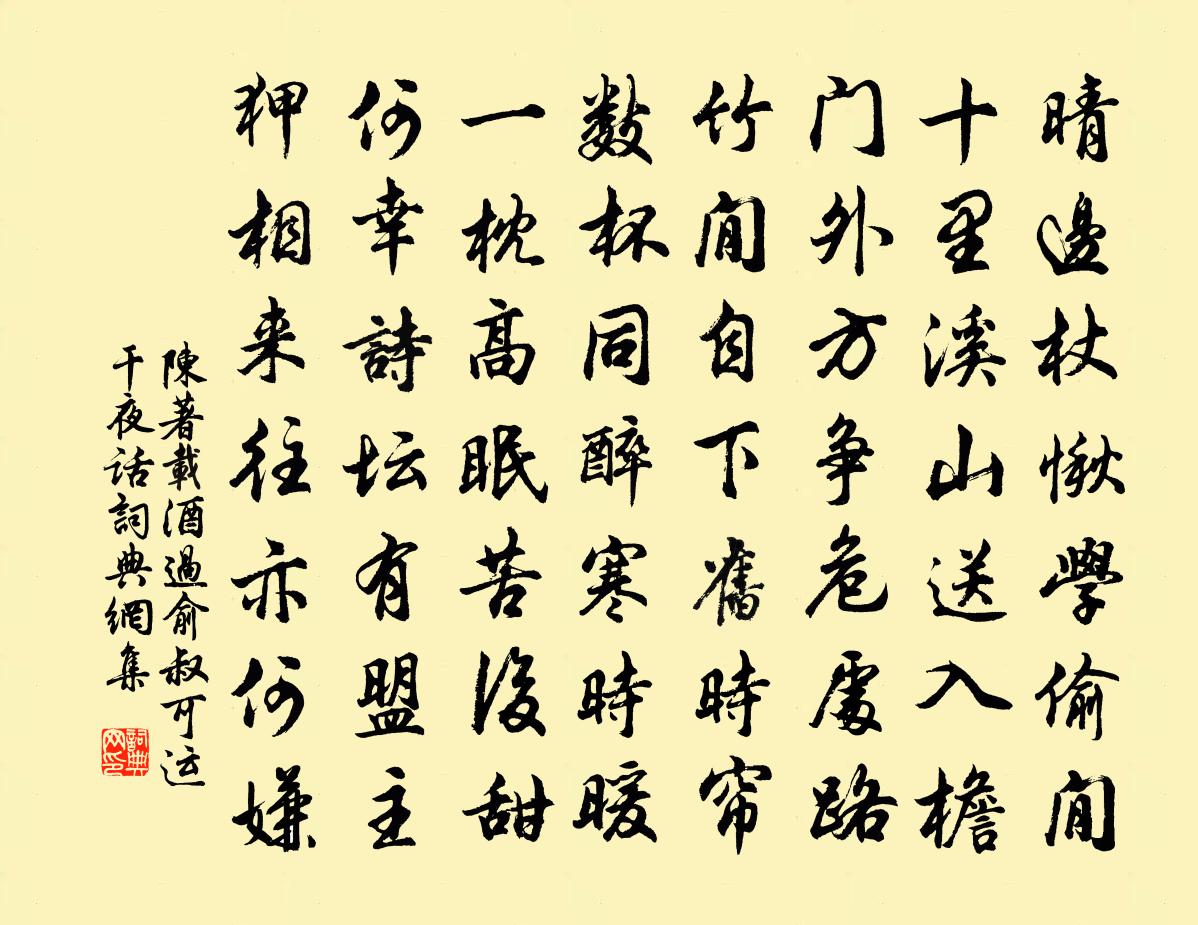 晴邊杖愀學偷閒
十里溪山送入檐
门外方争危處路
竹閒自下舊時帘
数杯同醉寒時暖
一枕高眠苦後甜
何幸詩坛有盟主
狎相来往亦何嫌
陳著載酒過俞叔可运
干夜话詞典網集
詞典
网印